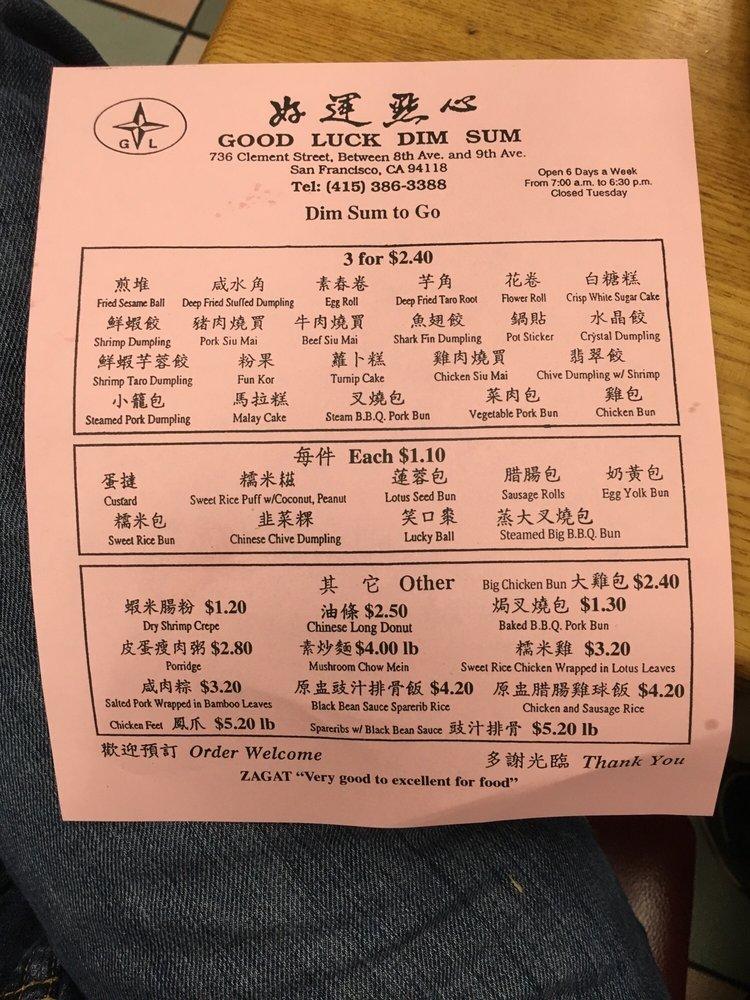 好運點心
G L
GOOD LUCK DIM SUM
736 Clement Street, Between 8th Ave. and 9th Ave.
San Francisco, CA 94118
Tel: (415) 386-3388
Open 6 Days a Week
From 7:00 a.m. to 6:30 p.m.
Closed Tuesday
Dim Sum to Go
3 for $2.40
煎堆 咸水角 素春卷 芋角 花卷 白糖糕
Fried Sesame Ball Deep Fried Stuffed Dumpling Egg Roll Deep Fried Taro Root Flower Roll Crisp White Sugar Cake
鮮蝦餃 豬肉燒買 牛肉燒買 魚翅餃 鍋貼 水晶餃
Shrimp Dumpling Pork Siu Mai Beef Siu Mai Shark Fin Dumpling Pot Sticker Crystal Dumpling
鮮蝦芋蓉餃 粉果 蘿卜糕 雞肉燒買 翡翠餃
Shrimp Taro Dumpling Fun Kor Turnip Cake Chicken Siu Mai Chive Dumpling w/ Shrimp
小籠包 馬拉糕 叉燒包 菜肉包 雞包
Steamed Pork Dumpling Malay Cake Steam B.B.Q. Pork Bun Vegetable Pork Bun Chicken Bun
每件 Each $1.10
蛋撻 糯米糍 蓮蓉包 腊腸包 奶黃包
Custard Sweet Rice Puff w/Coconut, Peanut Lotus Seed Bun Sausage Rolls Egg Yolk Bun
糯米包 韭菜粿 笑口棗 蒸大叉燒包
Sweet Rice Bun Chinese Chive Dumpling Lucky Ball Steamed Big B.B.Q. Bun
其它 Other Big Chicken Bun 大雞包 $2.40
蝦米腸粉 $1.20 油條 $2.50 焗叉燒包 $1.30
Dry Shrimp Crepe Chinese Long Donut Baked B.B.Q. Pork Bun
皮蛋瘦肉粥 $2.80 素炒麵 $4.00 lb 糯米雞 $3.20
Porridge Mushroom Chow Mein Sweet Rice Chicken Wrapped in Lotus Leaves
咸肉粽 $3.20 原盅豉汁排骨飯 $4.20 原盅腊腸雞球飯 $4.20
Salted Pork Wrapped in Bamboo Leaves Black Bean Sauce Sparerib Rice Chicken and Sausage Rice
Chicken Feet 鳳爪 $5.20 lb Spareribs w/ Black Bean Sauce 豉汁排骨 $5.20 lb
歡迎預訂 Order Welcome 多謝光臨 Thank You
ZAGAT “Very good to excellent for food”